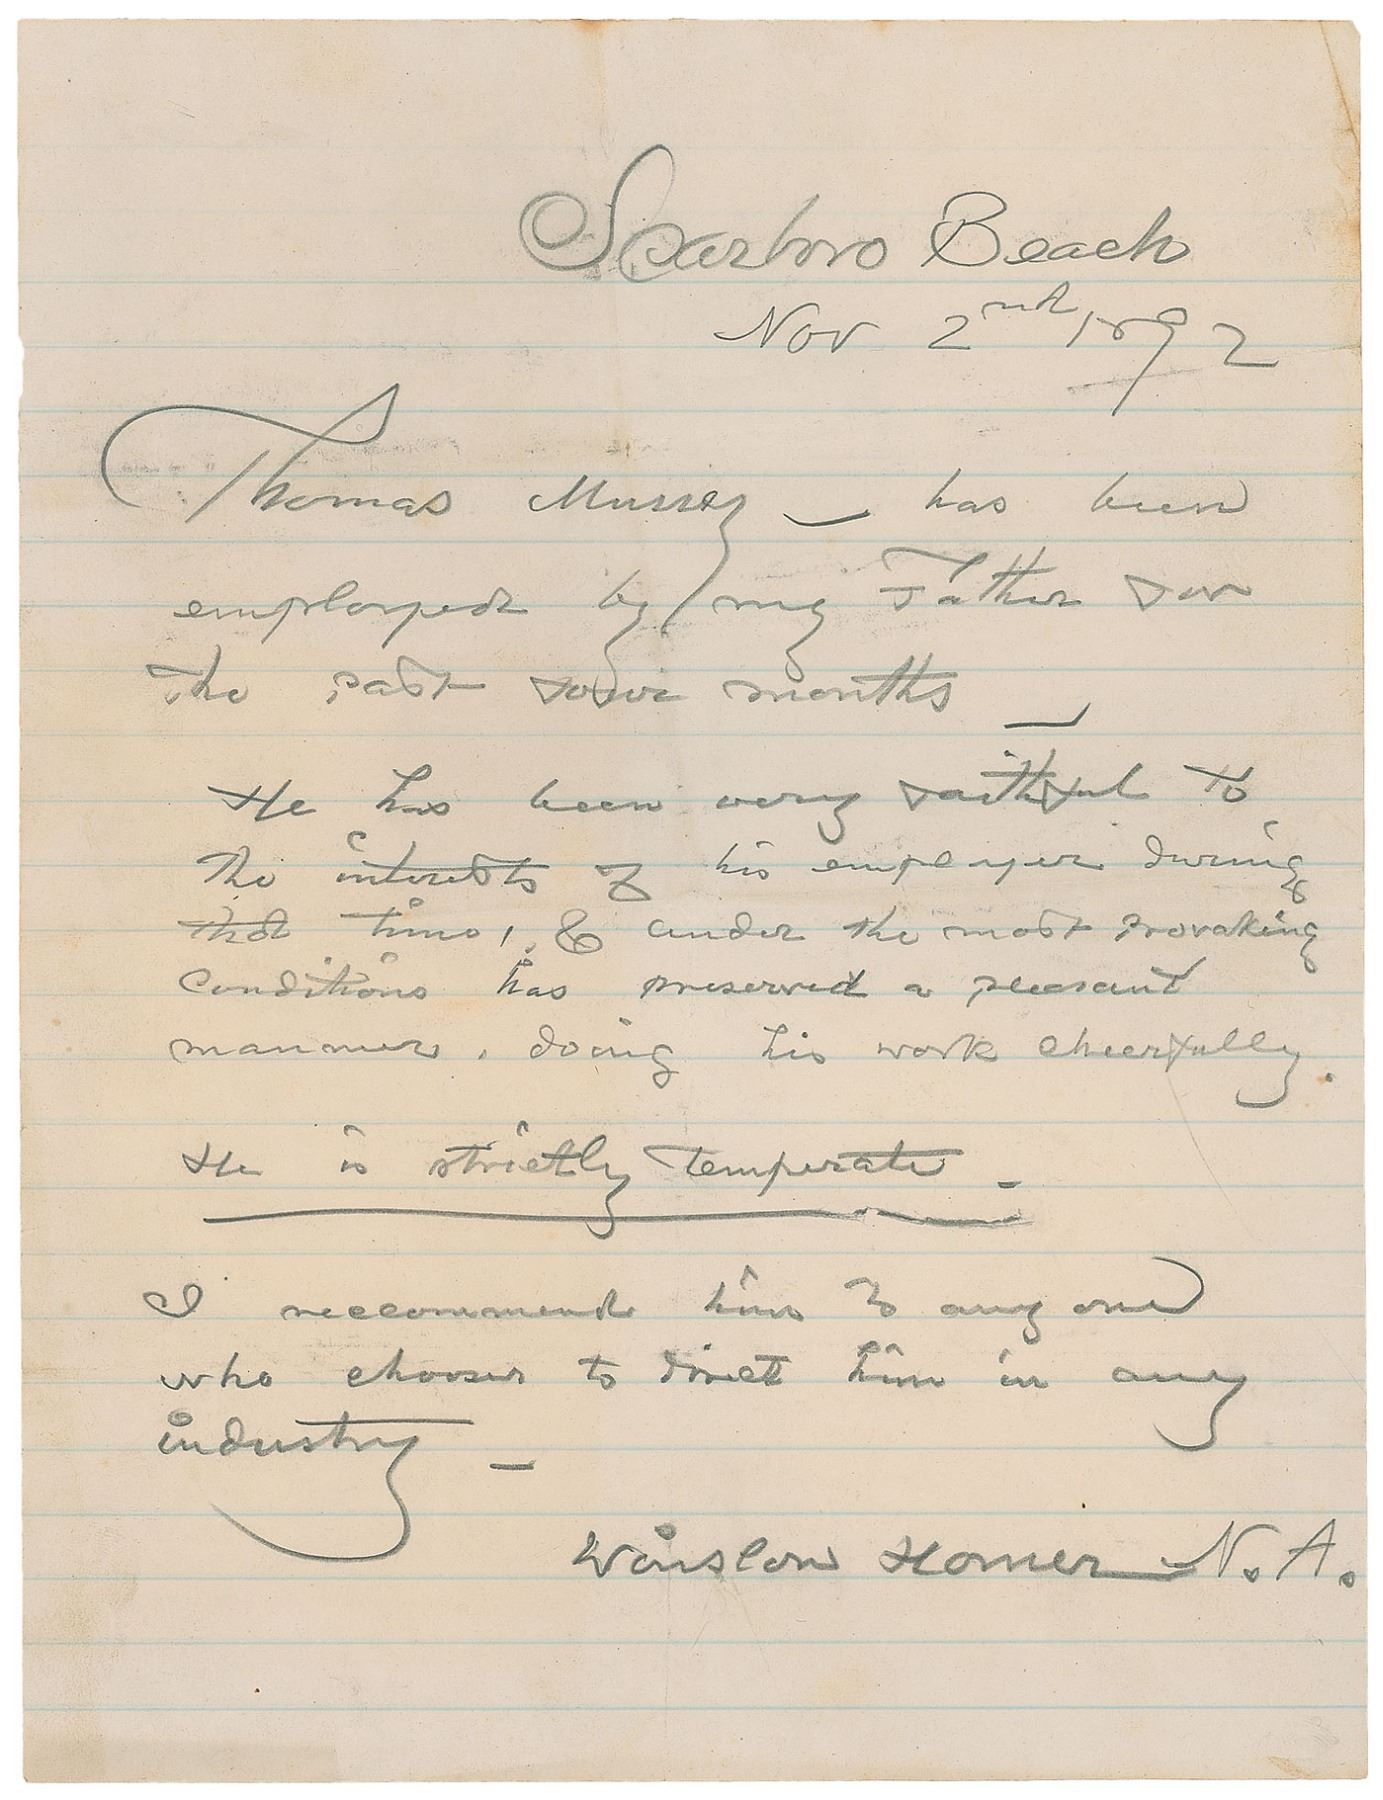 Scarboro Beach
Nov 2nd 1892
Thomas Murrey — has been
employed by my Father for
the past four months —
He has been very faithful to
the interests of his employer during
that time, & under the most provoking
conditions has preserved a pleasant
manner, doing his work cheerfully.
He is strictly temperate —
I reccommend him to any one
who chooses to direct him in any
industry —
Winslow Homer N.A.